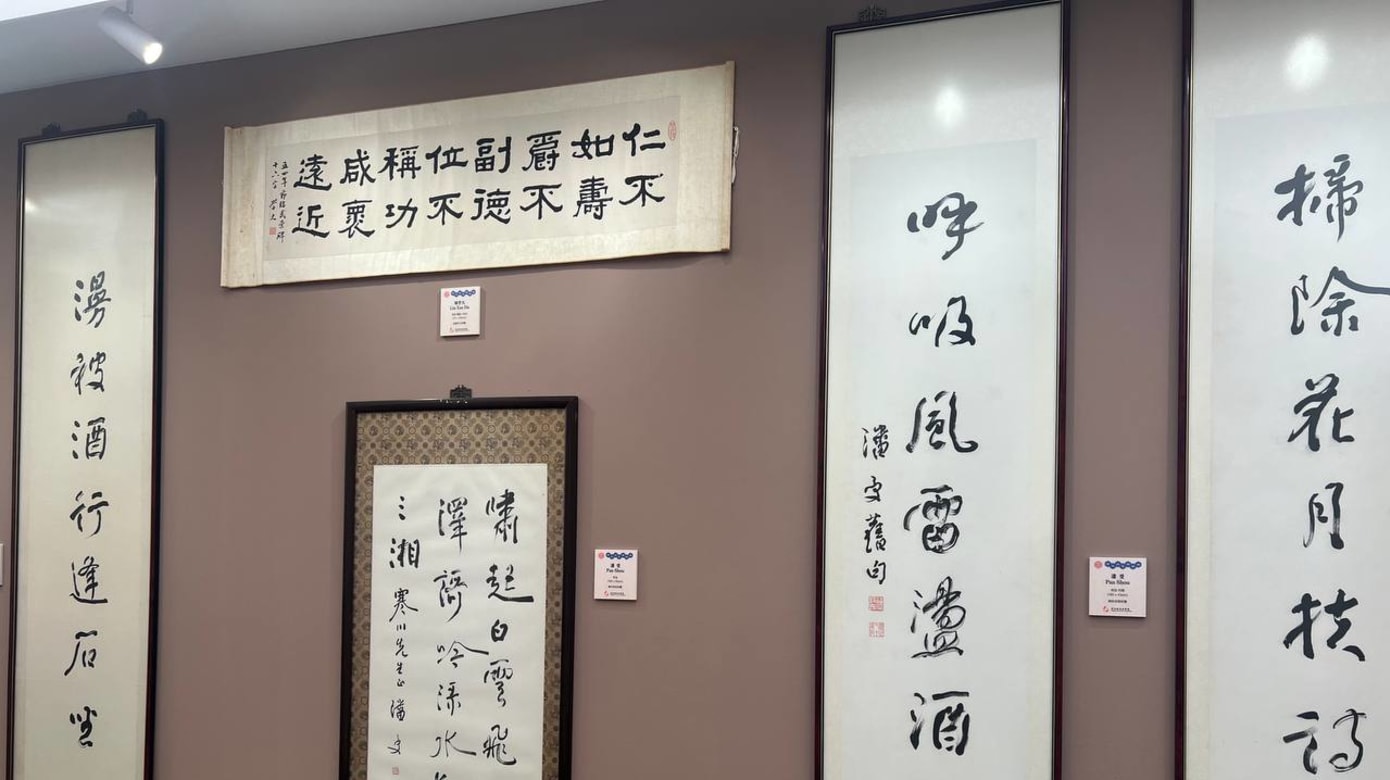 漫被酒行逢石坐
仁不
如壽
爵不
副德
位不
稱功
咸裒
遠近
十六字
嘯起白雲飛
澤謌吟深水
三湘 寒川先生正 潘受
潘受
Pan Shou
呼吸風雷盪酒
潘受舊句
潘受
Pan Shou
掃除花月扶詩